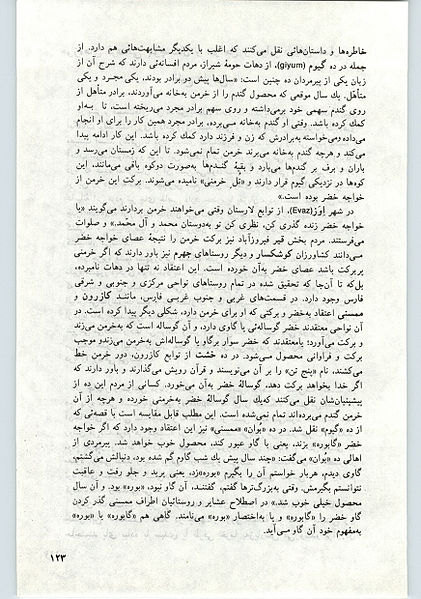 خاطره‌ها و داستان‌هائی نقل می‌کنند که اغلب با یکدیگر مشابهت‌هائی هم دارد. از
جمله در ده گیوم (giyum)، از دهات حومهٔ شیراز، مردم افسانه‌ئی دارند که شرح آن از
زبان یکی از پیرمردان ده چنین است: «سال‌ها پیش دو برادر بودند، یکی مجرد و یکی
متأهل. یك سال موقعی که محصول گندم را از خرمن به‌خانه می‌آوردند، برادر متأهل از
روی گندم سهمی خود برمی‌داشته و روی سهم برادر مجرد می‌ریخته است، تا به‌او
کمك کرده باشد. وقتی او گندم به‌خانه می‌برده، برادر مجرد همین کار را برای او انجام
می‌داده ومی‌خواسته به‌برادرش که زن و فرزند دارد کمك کرده باشد. این کار ادامه پیدا
می‌کند و هرچه گندم به‌خانه می‌برند خرمن تمام نمی‌شود. تا این که زمستان می‌رسد و
باران و برف بر گندم‌ها می‌بارد و بقیهٔ گندم‌ها به‌صورت دوکوه باقی می‌مانند. این
کوه‌ها در نزدیکی گیوم قرار دارند و «تُل خرمنی» نامیده می‌شوند. برکت این خرمن از
خواجه خضر بوده است.»
در شهر اِوَز (Evaz)، از توابع لارستان وقتی می‌خواهند خرمن بردارند می‌گویند «یا
خواجه خضر زنده گذری کن، نظری کن تو به‌دوستان محمد و آل محمد.» و صلوات
می‌فرستند. مردم بخش قیر فیروزآباد نیز برکت خرمن را نتیجهٔ عصای خواجه خضر
می‌دانند کشاورزان کوشکسار و دیگر روستاهای جهرم نیز باور دارند که اگر خرمنی
پربرکت باشد عصای خضر به‌آن خورده است. این اعتقاد نه تنها در دهات نامبرده،
بل‌که تا آن‌جا که تحقیق شده در تمام روستاهای نواحی مرکزی و جنوبی و شرقی
فارس وجود دارد. در قسمت‌های غربی و جنوب غربی فارس، مانند کازرون و
ممسنی اعتقاد به‌خضر و برکتی که او برای خرمن دارد، شکلی دیگر پیدا کرده است. در
آن نواحی معتقدند خضر گوساله‌ئی یا گاوی دارد، و آن گوساله است که به‌خرمن می‌زند
و برکت می‌آورد؛ یامعتقدند که خضر سوار برگاو یا گوساله‌اش به‌خرمن می‌زندو موجب
برکت و فراوانی محصول می‌شود. در ده خشت از توابع کازرون، دور خرمن خط
می‌کشند، نام «پنج تن» را بر آن می‌نویسند و قرآن رویش می‌گذارند و باور دارند که
اگر خدا بخواهد برکت دهد، گوسالهٔ خضر به‌آن می‌خورد. کسانی از مردم این ده از
پیشینیان‌شان نقل می‌کنند که‌یك سال گوسالهٔ خضر به‌خرمنی خورده و هرچه از آن
خرمن گندم می‌برده‌اند تمام نمی‌شده است. این مطلب قابل مقایسه است با قصه‌ئی که
از ده «گیوم» نقل شد. در ده «بُوان» «ممسنی» نیز این اعتقاد وجود دارد که اگر خواجه
خضر «گابوره» بزند، یعنی با گاو عبور کند، محصول خوب خواهد شد. پیرمردی از
اهالی ده «بوان» می‌گفت: «چند سال پیش یك شب گاوم گم شده بود، دنبالش می‌گشتم،
گاوی دیدم، هربار خواستم آن را بگیرم «بوره»زد، یعنی پرید و جلو رفت و عاقبت
نتوانستم بگیرمش. وقتی به‌بزرگ‌ترها گفتم، گفتند، آن گاو نبود، «بوره» بود. و آن سال
محصول خیلی خوب شد.» در اصطلاح عشایر و روستائیان اطراف ممسنی گذر کردن
گاو خضر را «گابوره» و یا به‌اختصار «بوره» می‌نامند. گاهی هم «گابوره» یا «بوره»
به‌مفهوم خود آن گاو می‌آید.
۱۲۳